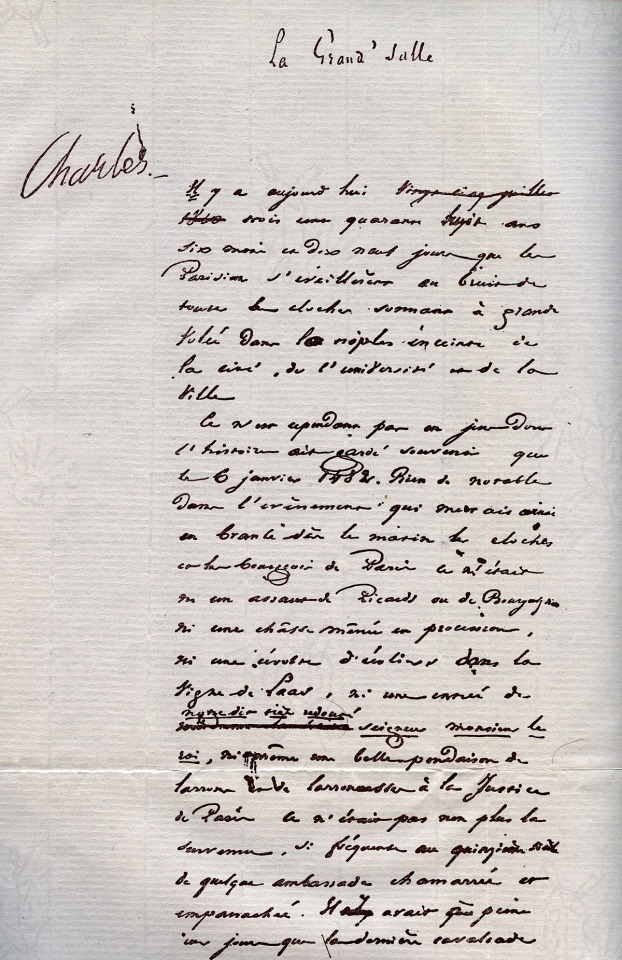 La Grand' Salle
Charles.
Il y a aujourd'hui vingt-cinq juillet
trois cent quarante huit ans
six mois et dix neuf jours que les
Parisiens s'éveillèrent au bruit de
toutes les cloches sonnant à grande
volée dans la triples enceinte de
la cité, de l'université et de la
Ville
Ce n'est cependant pas un jour dont
l'histoire ait gardé souvenir que
le 6 janvier 1482. Rien de notable
dans l'evènement qui mettait ainsi
en branle dès le matin les cloches
et les bourgeois de Paris Ce n'était
ni un assaut de Picards ou de Bourguignons
ni une châsse menée en procession,
ni une révolte d'écoliers dans la
Vigne de Laas, ni une entrée de
notre dit très redouté
seigneur monsieur le
roi, ni même une belle pendaison de
larrons et de larronnesses à la Justice
de Paris Ce n'était pas non plus la
survenue, si fréquente au quinzième siècle
de quelque ambassade chamarrée et
empanachée. Il y avait qu'à peine
deux jours que la dernière cavalcade